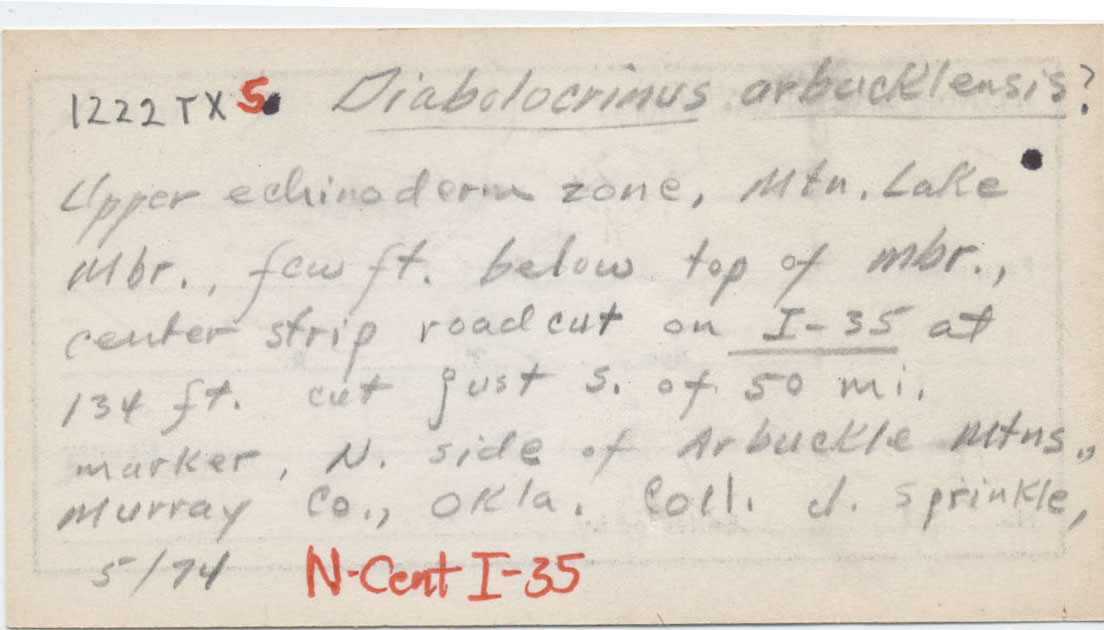 1222TX5. Diabolocrinus arbucklensis?
Upper echinoderm zone, Mtn. Lake
Mbr., few ft. below top of mbr.,
center strip roadcut on I-35 at
134 ft. cut just S. of 50 mi.
marker, N. side of Arbuckle Mtns.,
Murray Co., Okla. Coll. J. Sprinkle,
5/74 N-Cent I-35